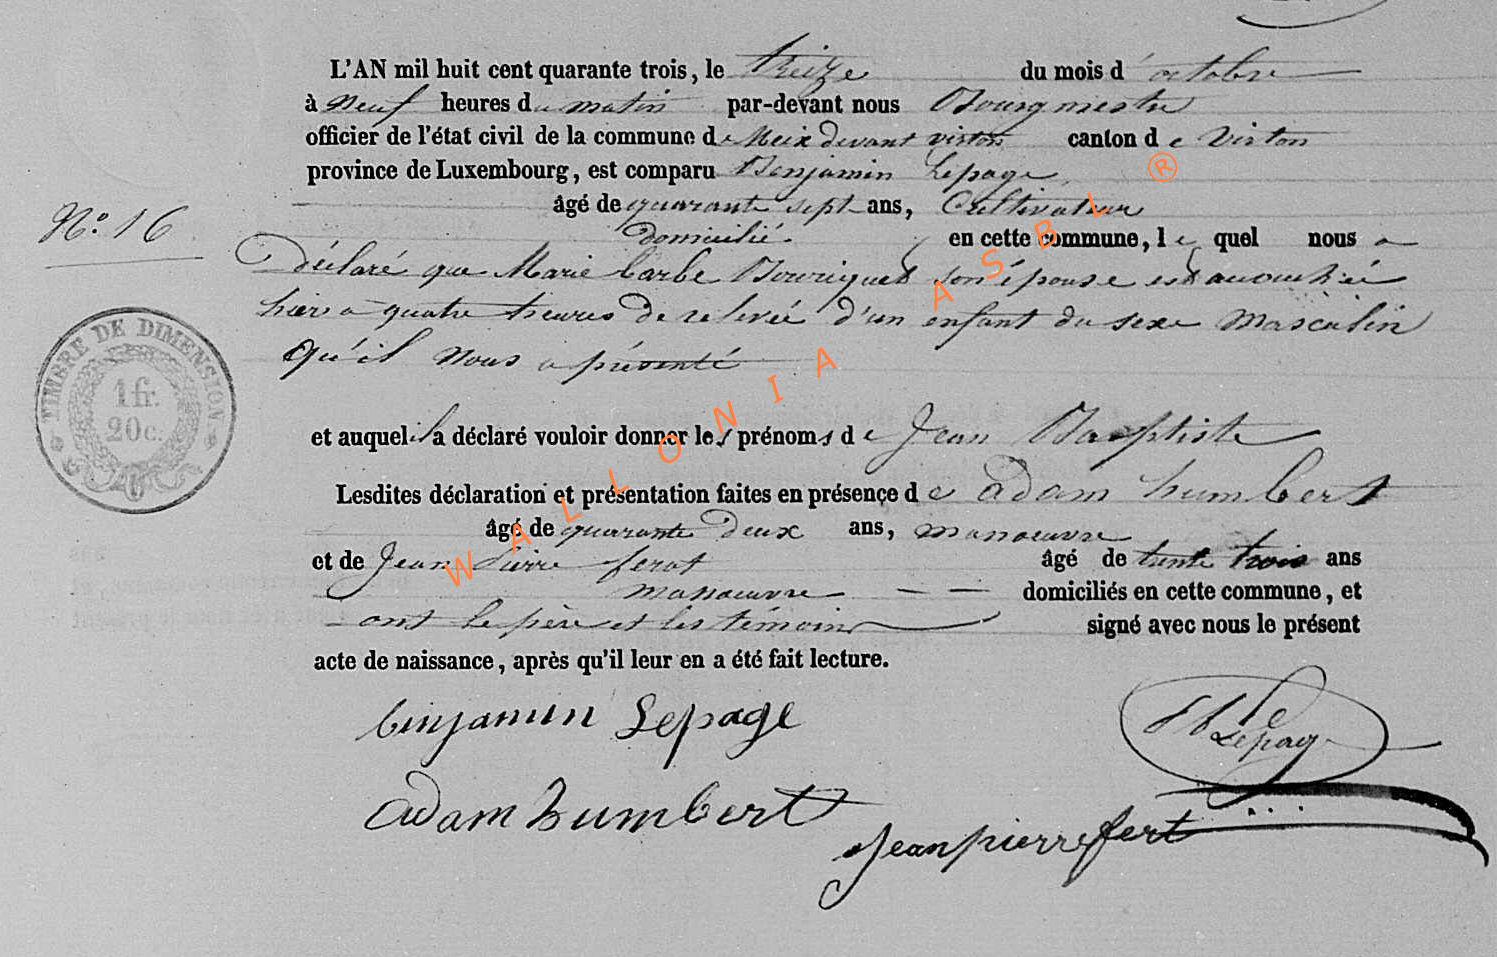 L'AN mil huit cent quarante trois, le treize du mois d'octobre
à neuf heures du matin par-devant nous Bourgmestre
officier de l'état civil de la commune de Meix devant virton canton de Virton
province de Luxembourg, est comparu Benjamin Lepage,
âgé de quarante sept ans, Cultivateur
N.o 16
domicilié en cette commune, le quel nous a
Déclaré que Marie barbe Bouriquet son épouse est accouchée
hier à quatre heures de relevée d'un enfant du sexe Masculin
qu'il nous a présenté
TIMBRE DE DIMENSION
1 fr.
20 c.
et auquel il a déclaré vouloir donner les prénoms de Jean Baptiste
Lesdites déclaration et présentation faites en présence de adam humbert
âgé de quarante Deux ans, manoeuvre
et de Jean Pierre ferot âgé de trente trois ans
manoeuvre domiciliés en cette commune, et
ont le père et les témoins signé avec nous le présent
acte de naissance, après qu'il leur en a été fait lecture.
benjamin Lepage
Lepage
adam humbert
jean pierre fert
WALLONIA ASBL ®